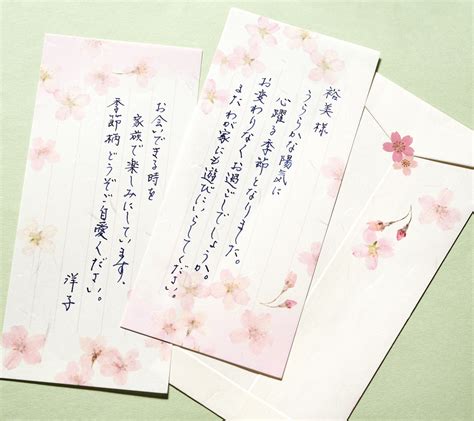 裕美様
うららかな陽気に
心躍る季節となりました。
お変わりなくお過ごしでしょうか。
またわが家にも遊びにいらしてください。
お会いできる時を
家族で楽しみにしています。
季節柄どうぞご自愛ください。
洋子